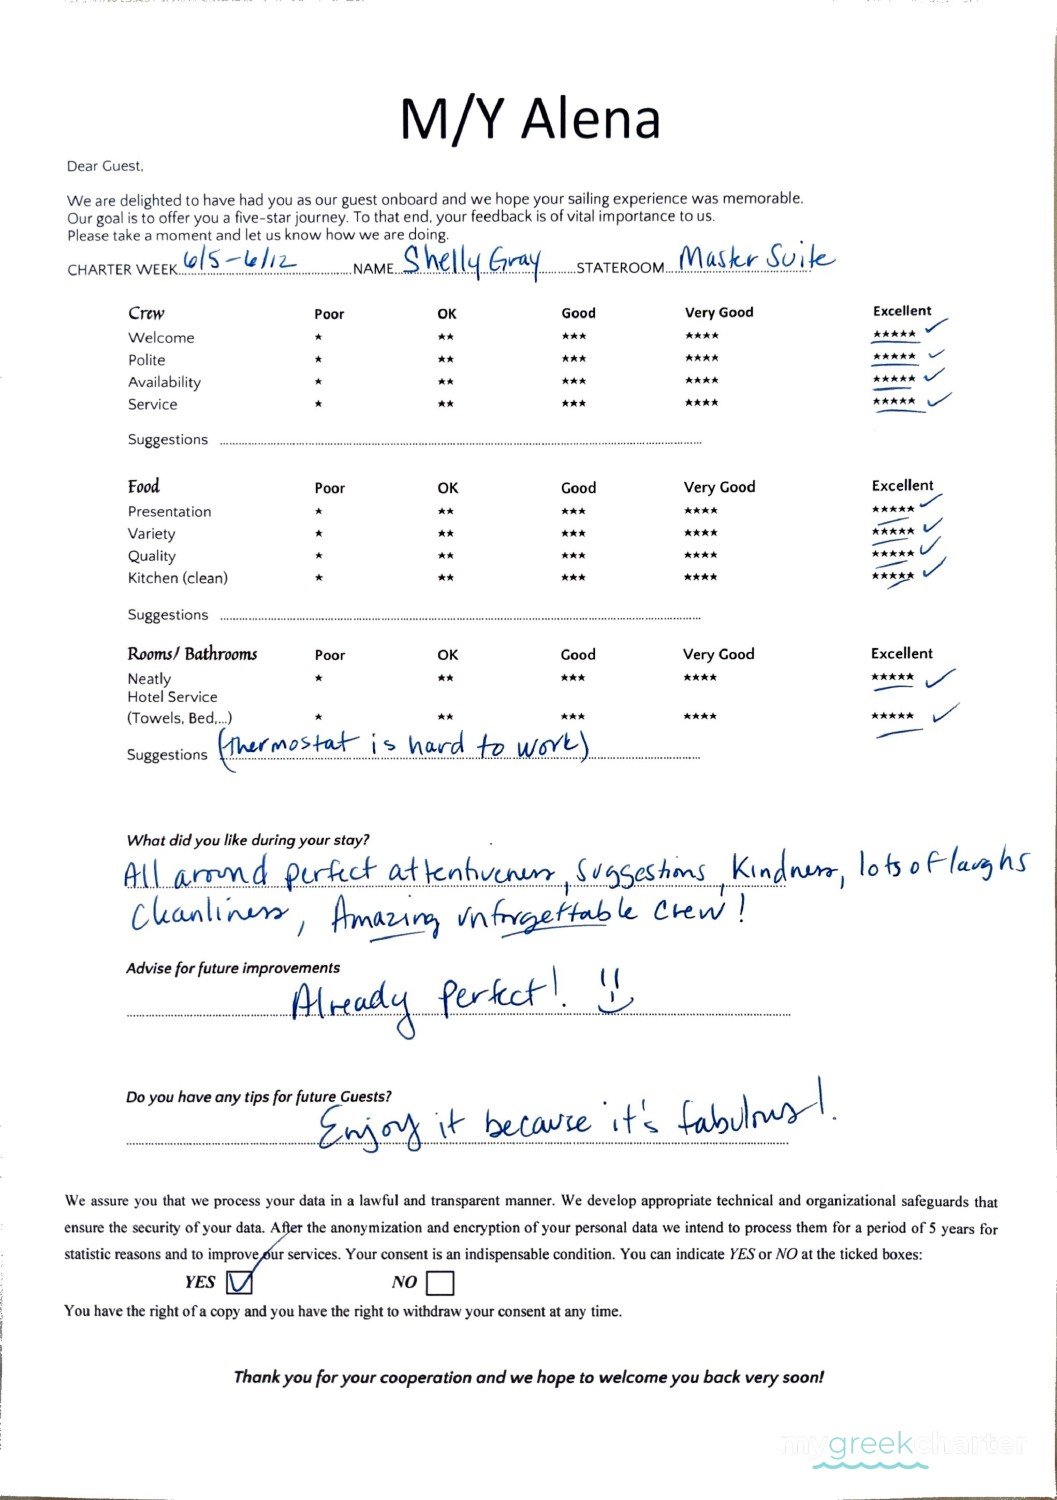 M/Y Alena
Dear Guest,
We are delighted to have had you as our guest onboard and we hope your sailing experience was memorable.
Our goal is to offer you a five-star journey. To that end, your feedback is of vital importance to us.
Please take a moment and let us know how we are doing.
CHARTER WEEK 6/5-6/12 NAME Shelly Gray STATEROOM Master Suite
Crew Poor OK Good Very Good Excellent
Welcome ★ ★★ ★★★ ★★★★ ★★★★★ ✓
Polite ★ ★★ ★★★ ★★★★ ★★★★★ ✓
Availability ★ ★★ ★★★ ★★★★ ★★★★★ ✓
Service ★ ★★ ★★★ ★★★★ ★★★★★ ✓
Suggestions
Food Poor OK Good Very Good Excellent
Presentation ★ ★★ ★★★ ★★★★ ★★★★★ ✓
Variety ★ ★★ ★★★ ★★★★ ★★★★★ ✓
Quality ★ ★★ ★★★ ★★★★ ★★★★★ ✓
Kitchen (clean) ★ ★★ ★★★ ★★★★ ★★★★★ ✓
Suggestions
Rooms/ Bathrooms Poor OK Good Very Good Excellent
Neatly ★ ★★ ★★★ ★★★★ ★★★★★ ✓
Hotel Service
(Towels, Bed,...) ★ ★★ ★★★ ★★★★ ★★★★★ ✓
Suggestions (Thermostat is hard to work)
What did you like during your stay?
All around perfect attentiveness, suggestions, Kindness, lots of laughs
Cleanliness, Amazing unforgettable crew!
Advise for future improvements
Already perfect!
Do you have any tips for future Guests?
Enjoy it because it's fabulous!
We assure you that we process your data in a lawful and transparent manner. We develop appropriate technical and organizational safeguards that
ensure the security of your data. After the anonymization and encryption of your personal data we intend to process them for a period of 5 years for
statistic reasons and to improve our services. Your consent is an indispensable condition. You can indicate YES or NO at the ticked boxes:
YES ☑ NO ☐
You have the right of a copy and you have the right to withdraw your consent at any time.
Thank you for your cooperation and we hope to welcome you back very soon!
mygreekcharter